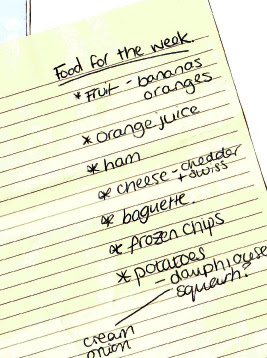 Food for the week
* Fruit - bananas
oranges
* orange juice
* ham
* cheese - cheddar
+ swiss
* baguette.
* frozen chips
* potatoes
- dauphiouese
squewh?
cream
onion